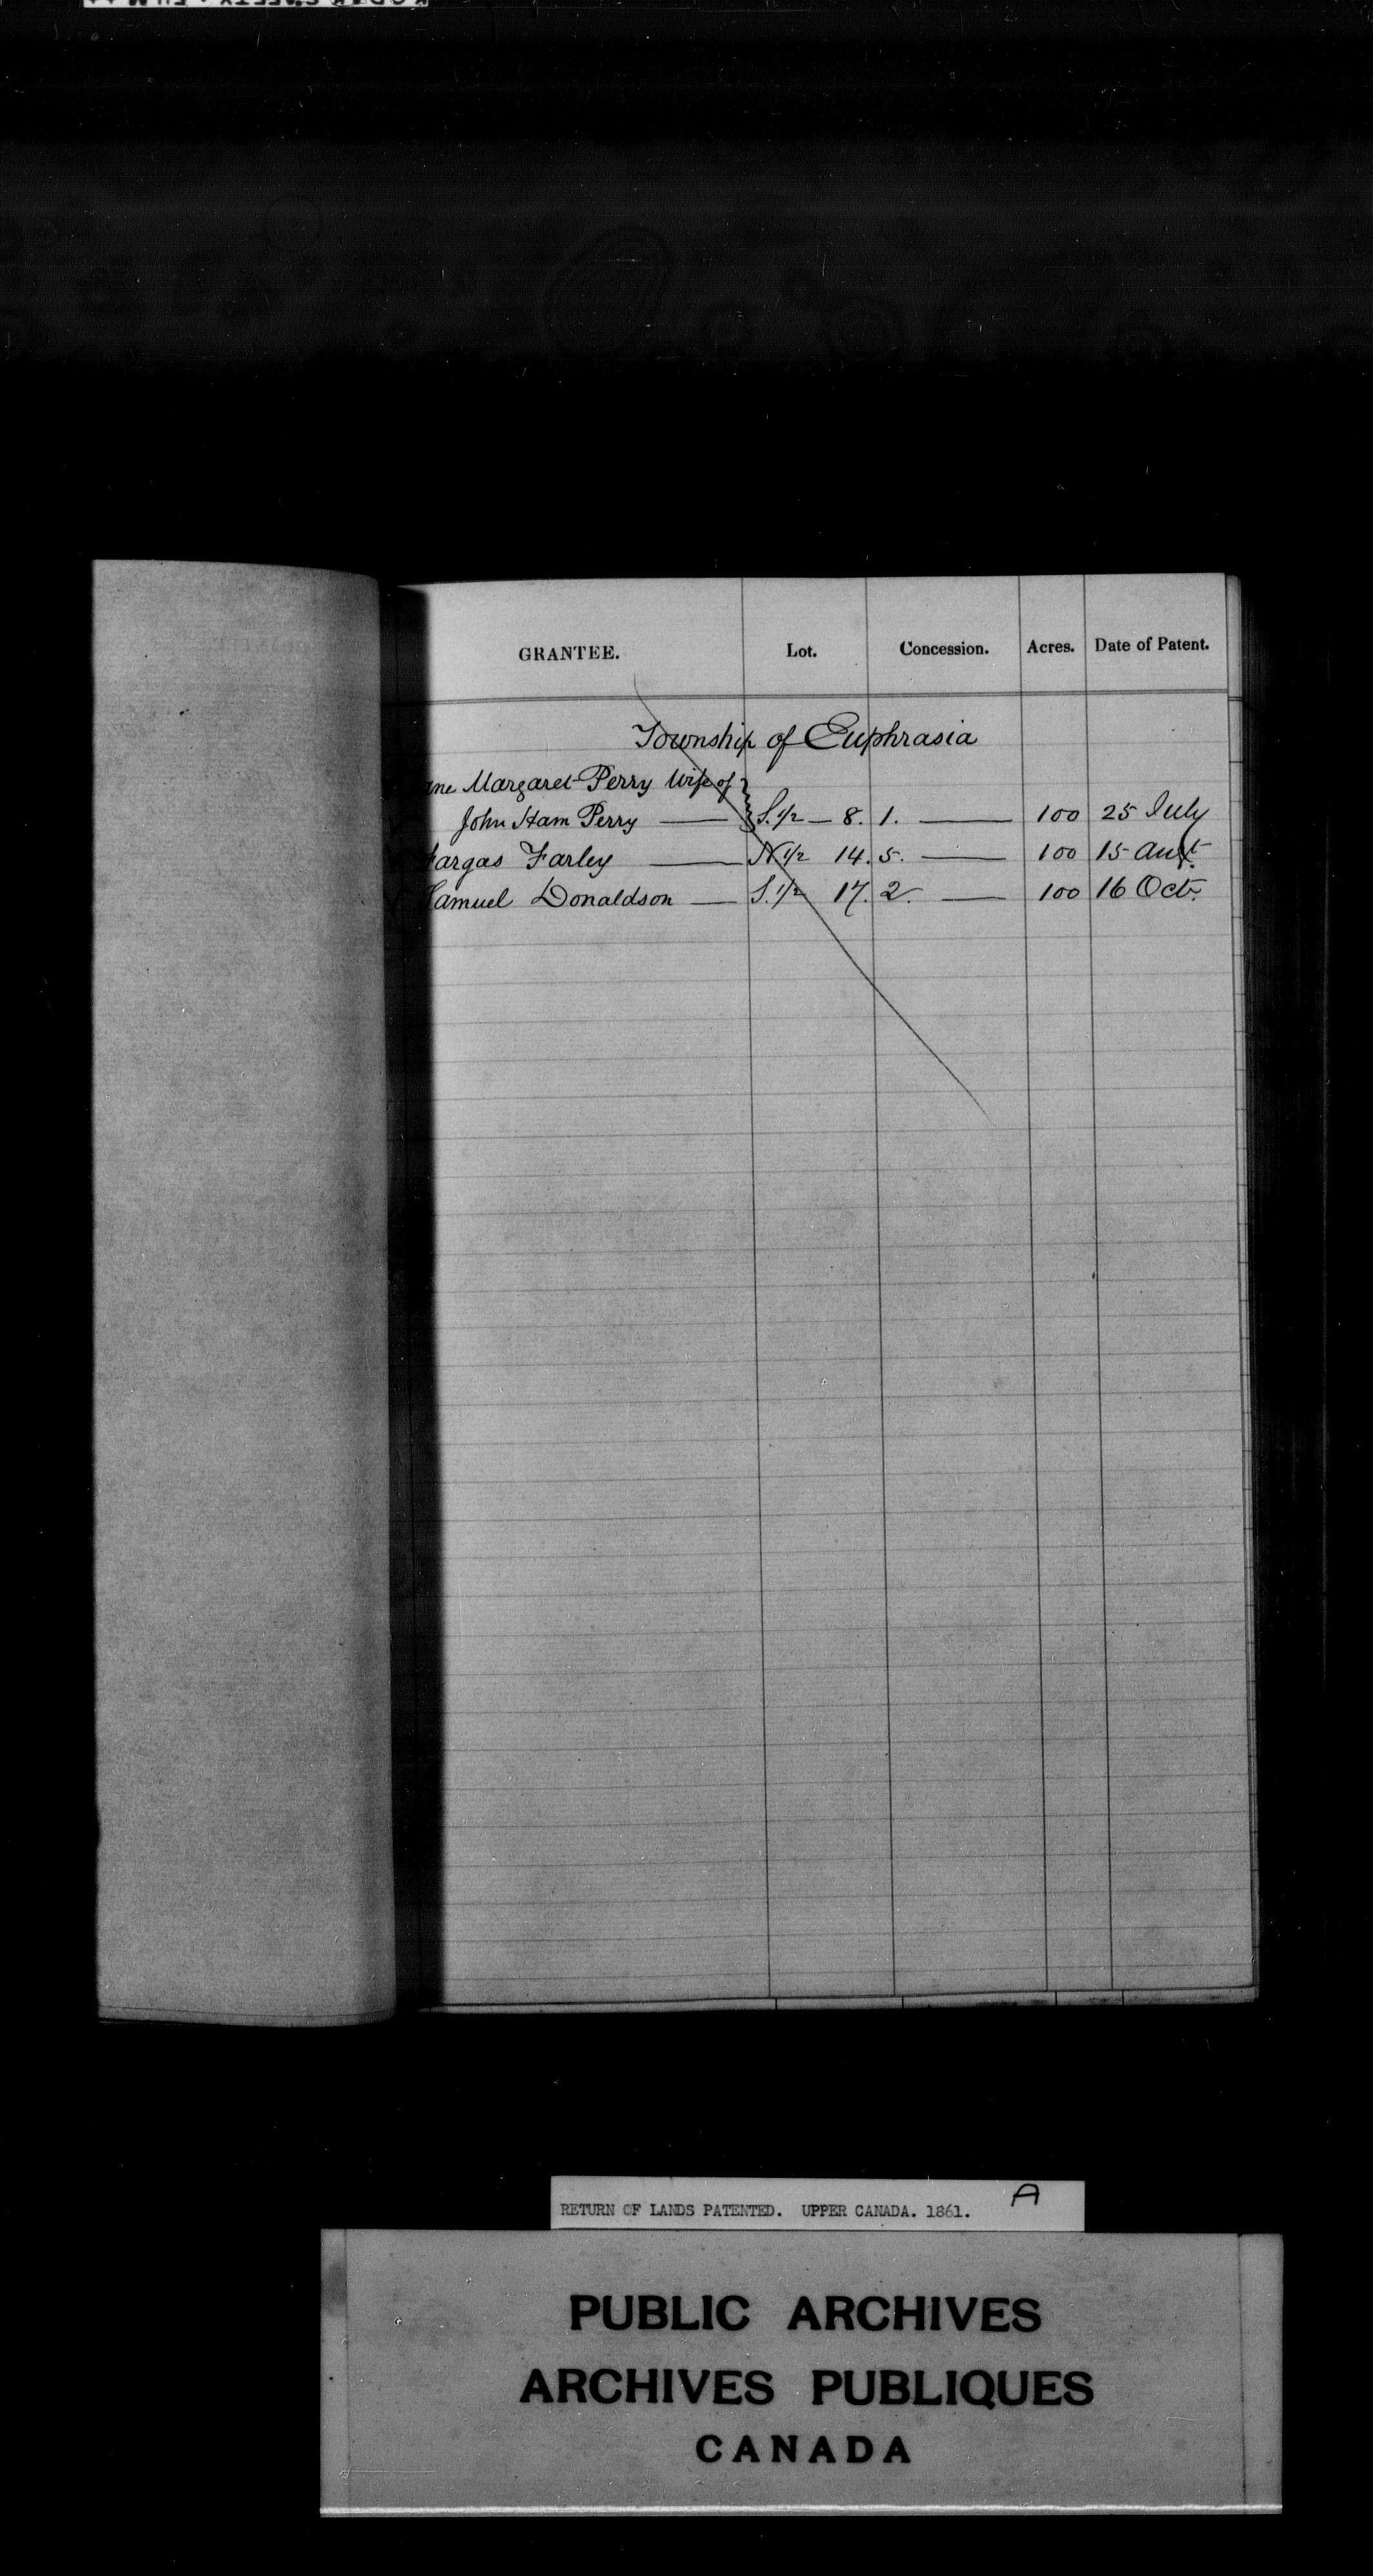 GRANTEE. Lot. Concession. Acres. Date of Patent.
Township of Euphrasia
ane Margaret Perry Wife of
John Ham Perry — S. 1/2 — 8. 1. — 100 25 July
Fargas Farley — N 1/2 14. 5. — 100 15 Augt
Samuel Donaldson — S. 1/2 17. 2. — 100 16 Octr.
RETURN OF LANDS PATENTED. UPPER CANADA. 1861. A
PUBLIC ARCHIVES
ARCHIVES PUBLIQUES
CANADA